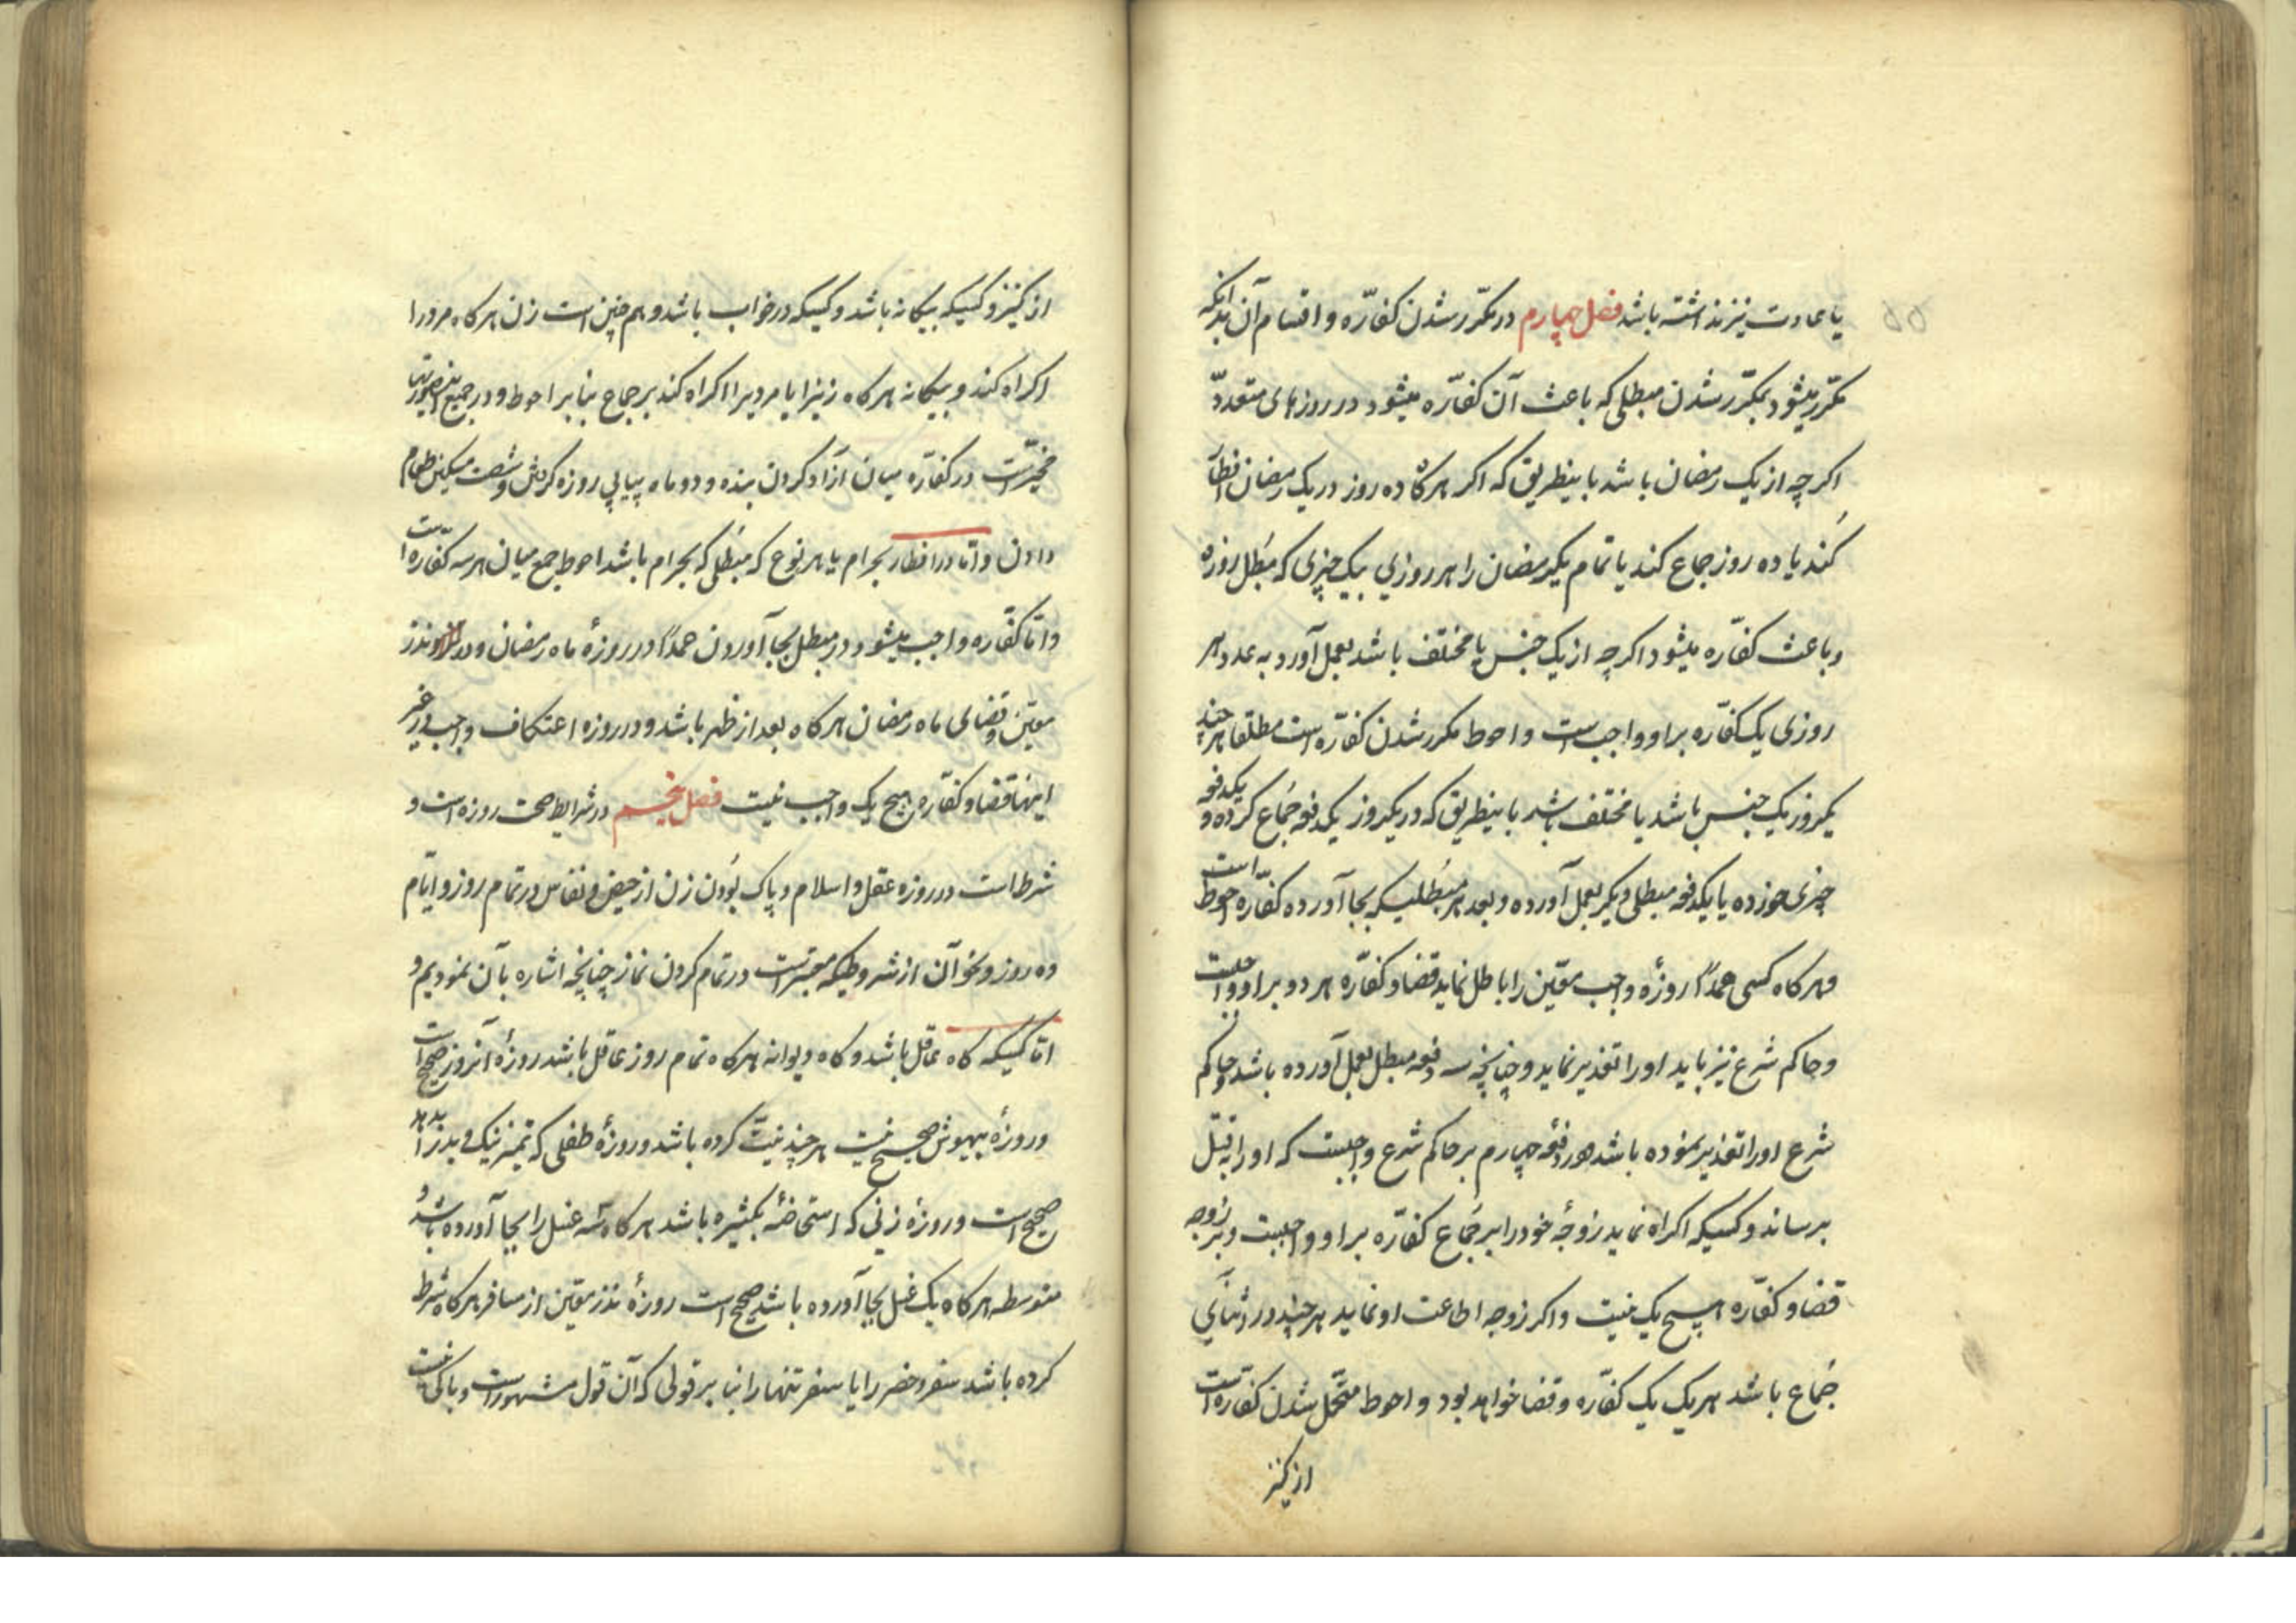 یا عادت نیز نداشته باشد فصل چهارم در مکرّر شدن کفّاره و اقسام آن بدانکه
مکرّر میشود بمکرّر شدن مبطلی که باعث آن کفّاره میشود در روزهای متعدّد
اکرچه از یک رمضان باشد باینطریق که اکر هرکاه ده روز در یک رمضان افطار
کند یا ده روز جماع کند یا تمام یکرمضان را هر روزی بیک چیزی که مبطل روزه
و باعث کفّاره میشود اکرچه از یک جنس یا مختلف باشد بعمل آورد به عدد هر
روزی یک کفّاره بر او واجب است و احوط مکرر شدن کفّاره است مطلقا هرچند
یکروز یک جنس باشد یا مختلف باشد باینطریق که در یکروز یکدفعه جماع کرده و یکدفعه
چیزی خورده یا یکدفعه مبطلی دیکر بعمل آورده و بعد هر مبطلیکه بجا آورده کفّاره احوط است
و هرکاه کسی عمداً روزهٔ واجب معّین را باطل نماید قضا و کفّاره هر دو بر او واجبست
و حاکم شرع نیز باید او را تعذیر نماید و چنانچه سه دفعه مبطل بعمل آورده باشد و حاکم
شرع او را تعذیر نموده باشد در دفعه چهارم بر حاکم شرع واجبست که او را بقتل
برساند و کسیکه اکراه نماید زوجهٔ خود را بر جماع کفّاره بر او واجبست و بر زوجه
قضا و کفّاره هیچ یک نیست و اکر زوجه اطاعت او نماید هرچند در اثنای
جماع باشد هر یک یک کفّاره و قضا خواهد بود و احوط متحّمل شدن کفّاره است
از کنیز
از کنیز و کسیکه بیکانه باشد و کسیکه در خواب باشد و هم چنین است زن هرکاه مرد را
اکراه کند و بیکانه هرکاه زنیرا یا مردیرا اکراه کند بر جماع بنا بر احوط و در جمیع اینصورتها
مخیّر است در کفّاره میان آزاد کردن بنده و دو ماه پیاپی روزه کرفتن و شصت مسکین طعام
دادن و امّا در افطار بحرام یا هر نوع که مبطلی که بحرام باشد احوط جمع میان هر سه کفّاره است
و امّا کفّاره واجب میشود در مبطل بجا آوردن عمداً در روزهٔ ماه رمضان و در نذر
معیّن و قضای ماه رمضان هرکاه بعد از ظهر باشد و در روزه اعتکاف واجب و در غیر
اینها قضا و کفّاره هیچ یک واجب نیست فصل پنجم در شرایط صحت روزه است و
شرط است در روزه عقل و اسلام و پاک بودن زن از حیض و نفاس در تمام روز و ایّام
ده روز و نحو آن از شروطیکه معتبر است در تمام کردن نماز چنانچه اشاره بآن نمودیم و
امّا کسیکه کاه عاقل باشد و کاه دیوانه هرکاه تمام روز عاقل باشد روزهٔ آنروز صحیح است
و روزهٔ بیهوش صحیح نیست هرچند نیّت کرده باشد و روزهٔ طفلی که تمیز نیک و بد را بدهد
صحیح است و روزهٔ زنی که استحاضهٔ بکثیره باشد هرکاه سه غسل را بجا آورده باشد و
متوسطه هرکاه یک غسل بجا آورده باشد صحیح است روزهٔ نذر معیّن از مسافر هرکاه شرط
کرده باشد سفر و حضر را یا سفر تنها را بنا بر قولی که آن قول مشهور است و باکی نیست